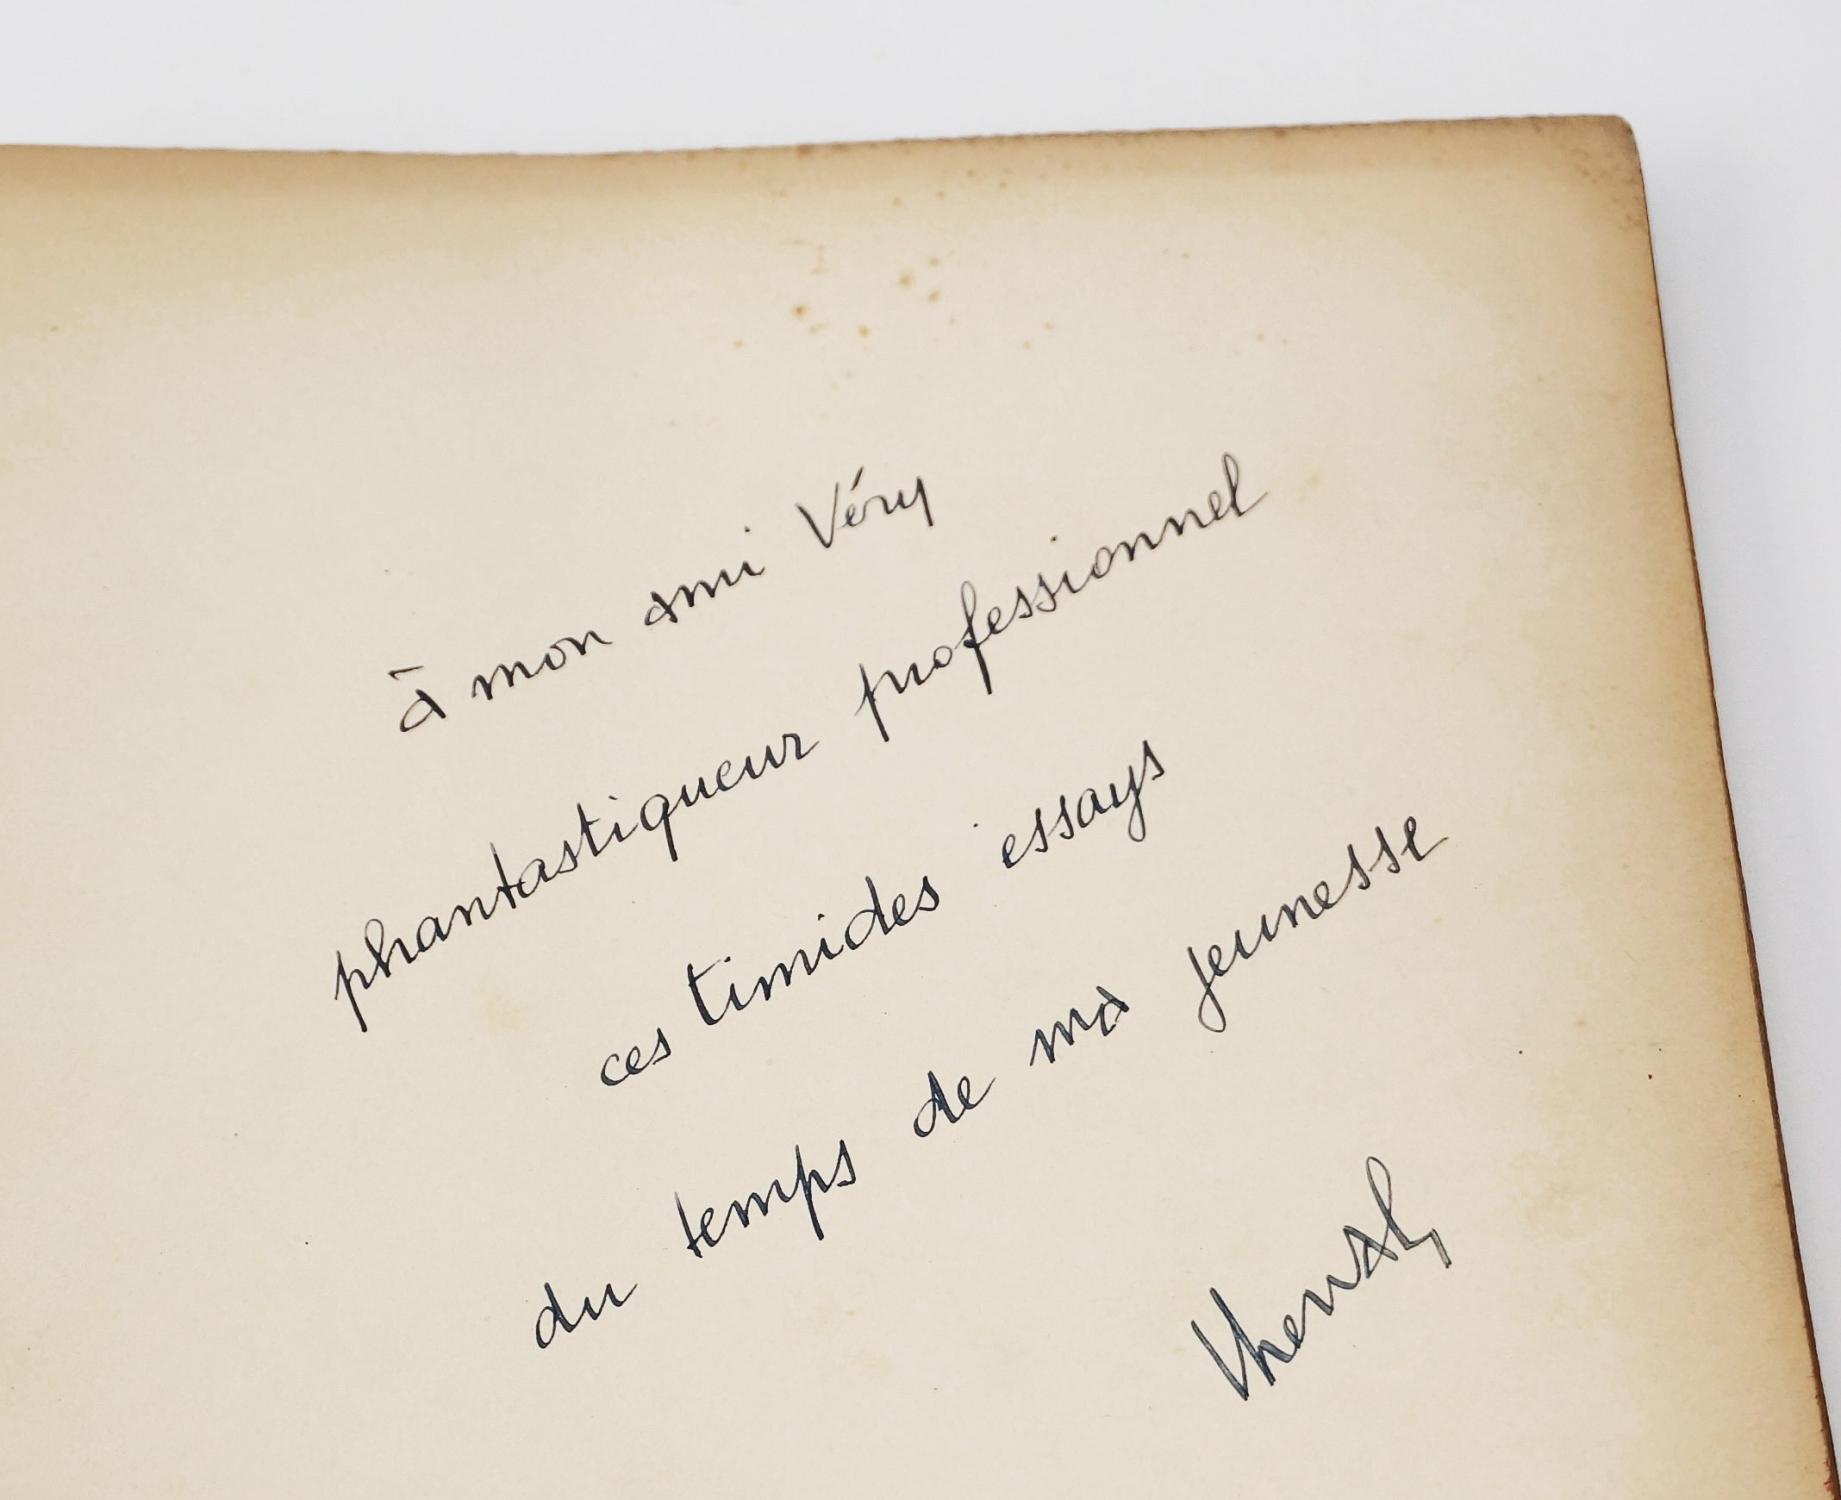 à mon ami Véry
phantastiqueur professionnel
ces timides essays
du temps de ma jeunesse